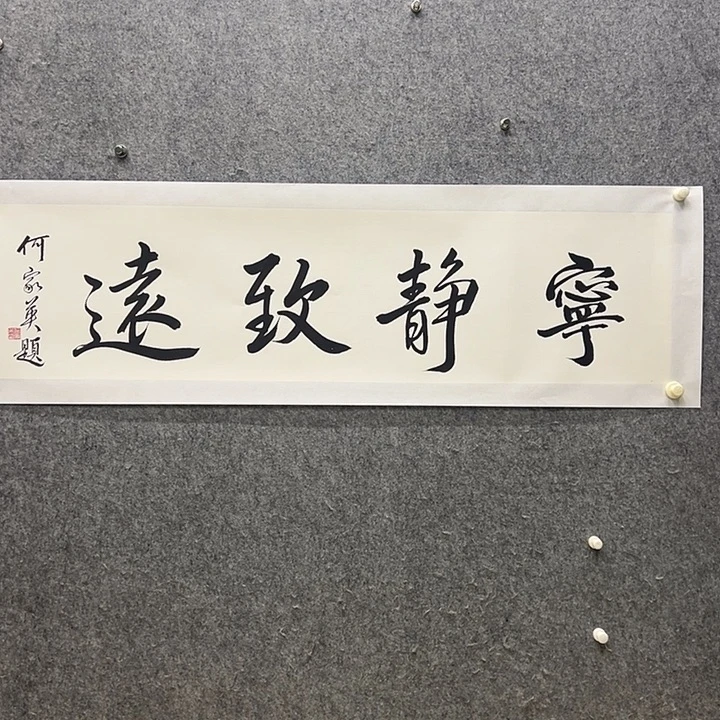 寧静致遠
何家英題